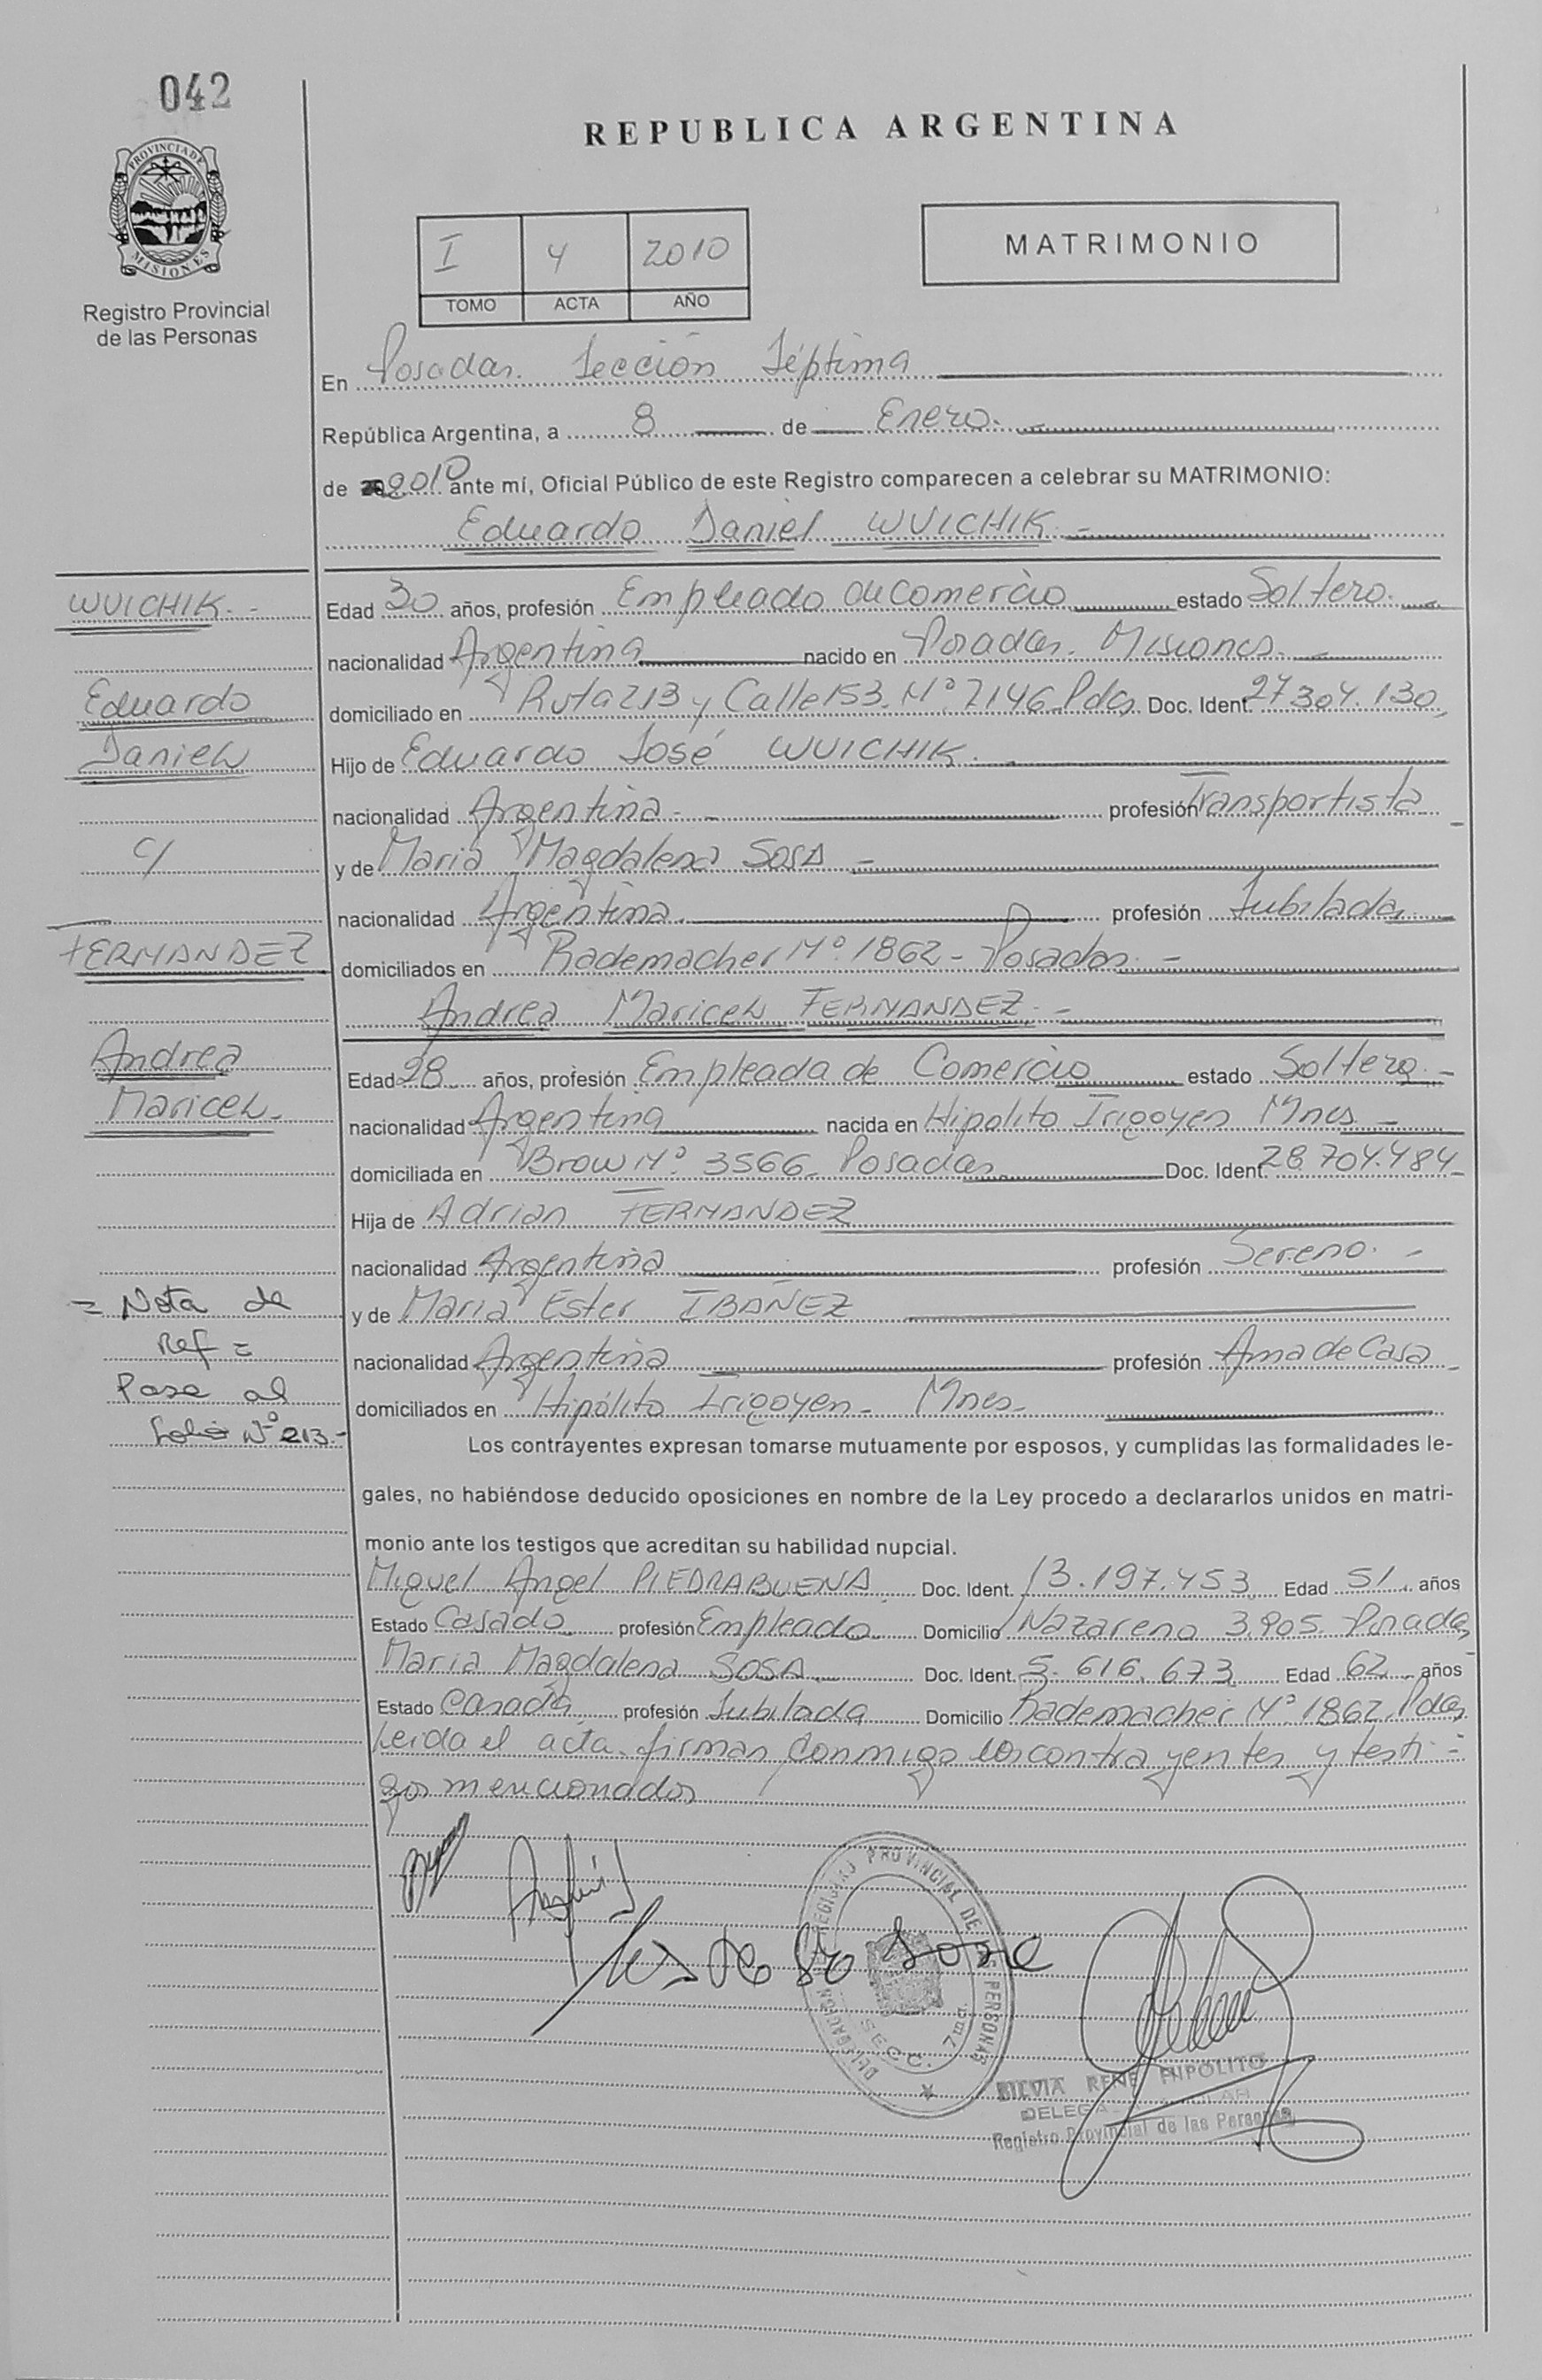 042
REPUBLICA ARGENTINA
PROVINCIA DE
MISIONES
Registro Provincial
de las Personas
I 4 2010
TOMO ACTA AÑO
MATRIMONIO
En Posadas. Sección Séptima
República Argentina, a 8 de Enero.
de 2010 ante mí, Oficial Público de este Registro comparecen a celebrar su MATRIMONIO:
Eduardo Daniel WUICHIK.-
WUICHIK.-
Edad 30 años, profesión Empleado de Comercio estado Soltero.
nacionalidad Argentina nacido en Posadas. Misiones.
Eduardo
domiciliado en Ruta 213 y Calle 153. Nº. 7146. Pdas Doc. Ident. 27.304.130
Daniel
Hijo de Eduardo José WUICHIK.
nacionalidad Argentina.- profesión Transportista
c/
y de Maria Magdalena SOSA
nacionalidad Argentina. profesión Jubilada
FERNANDEZ
domiciliados en Rademacher Nº. 1862 - Posadas.-
Andrea Maricel FERNANDEZ.-
Andrea
Edad 28 años, profesión Empleada de Comercio estado Soltera.-
Maricel.
nacionalidad Argentina nacida en Hipolito Irigoyen Mnes.-
domiciliada en Brow Nº. 3566. Posadas Doc. Ident. 28.704.484
Hija de Adrian FERNANDEZ
nacionalidad Argentina profesión Sereno.-
= Nota de
y de Maria Ester IBAÑEZ
Ref =
nacionalidad Argentina profesión Ama de Casa
Pasa al
domiciliados en Hipólito Irigoyen - Mnes-
folio Nº 213.-
Los contrayentes expresan tomarse mutuamente por esposos, y cumplidas las formalidades le-
gales, no habiéndose deducido oposiciones en nombre de la Ley procedo a declararlos unidos en matri-
monio ante los testigos que acreditan su habilidad nupcial.
Miguel Angel PIEDRABUENA Doc. Ident. 13.197.453 Edad 51 años
Estado Casado profesión Empleado Domicilio Nazareno 3.905. Posadas
Maria Magdalena SOSA Doc. Ident. 5.616.673 Edad 62 años
Estado Casada profesión Jubilada Domicilio Rademacher Nº. 1862. Pdas
Leida el acta. firman conmigo los contrayentes y testi-
gos mencionados
DELEGACION REGISTRO PROVINCIAL DE LAS PERSONAS
SECC. 7ma.
SILVIA RENE HIPOLITO
Registro Provincial de las Personas